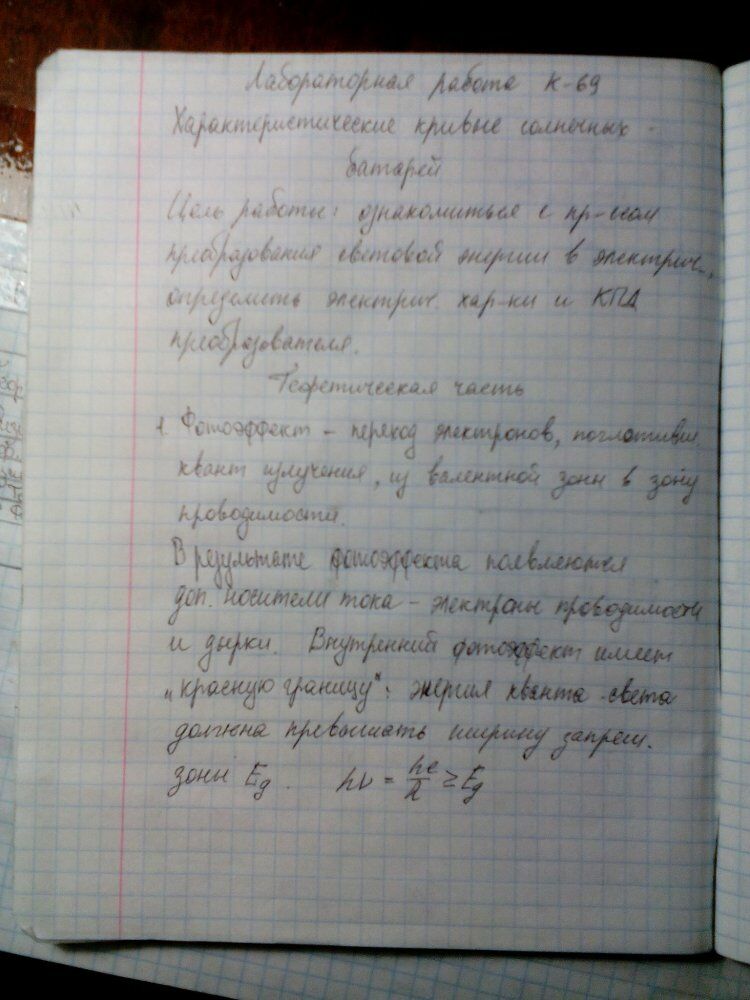 Лабораторная работа К-69
Характеристические кривые солнечных
батарей
Цель работы: ознакомиться с пр-ссом
преобразования световой энергии в электрич.,
определить электрич. хар-ки и КПД
преобразователя.
Теоретическая часть
1. Фотоэффект – переход электронов, поглотивш.
квант излучения, из валентной зоны в зону
проводимости.
В результате фотоэффекта появляются
доп. носители тока – электроны проводимости
и дырки. Внутренний фотоэффект имеет
"красную границу": энергия кванта света
должна превышать ширину запрещ.
зоны Eg. hν = hc/λ ≥ Eg